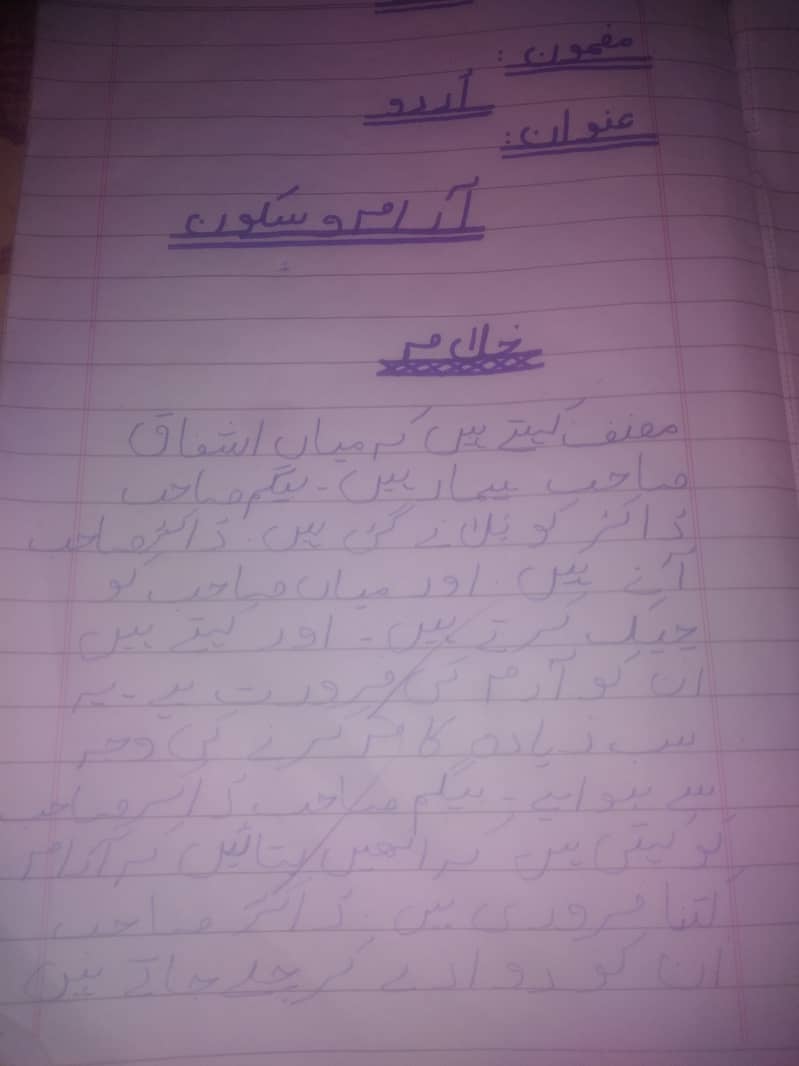 مضمون:
اُردو
عنوان:
آرام و سکون
خلاصہ
مصنف کہتے ہیں کہ میاں اشفاق
صاحب بیمار ہیں۔ بیگم صاحب
ڈاکٹر کو بلانے گئی ہیں۔ ڈاکٹر صاحب
آتے ہیں۔ اور میاں صاحب کو
چیک کرتے ہیں۔ اور کہتے ہیں
ان کو آرم کی ضرورت ہے۔ یہ
سب زیادہ کام کرنے کی وجہ
سے ہوا ہے۔ بیگم صاحب ڈاکٹر صاحب
کو کہتی ہیں کہ انھیں بتائیں کہ آرام
کتنا ضروری ہیں۔ ڈاکٹر صاحب
ان کو دوا دے کر چلے جاتے ہیں